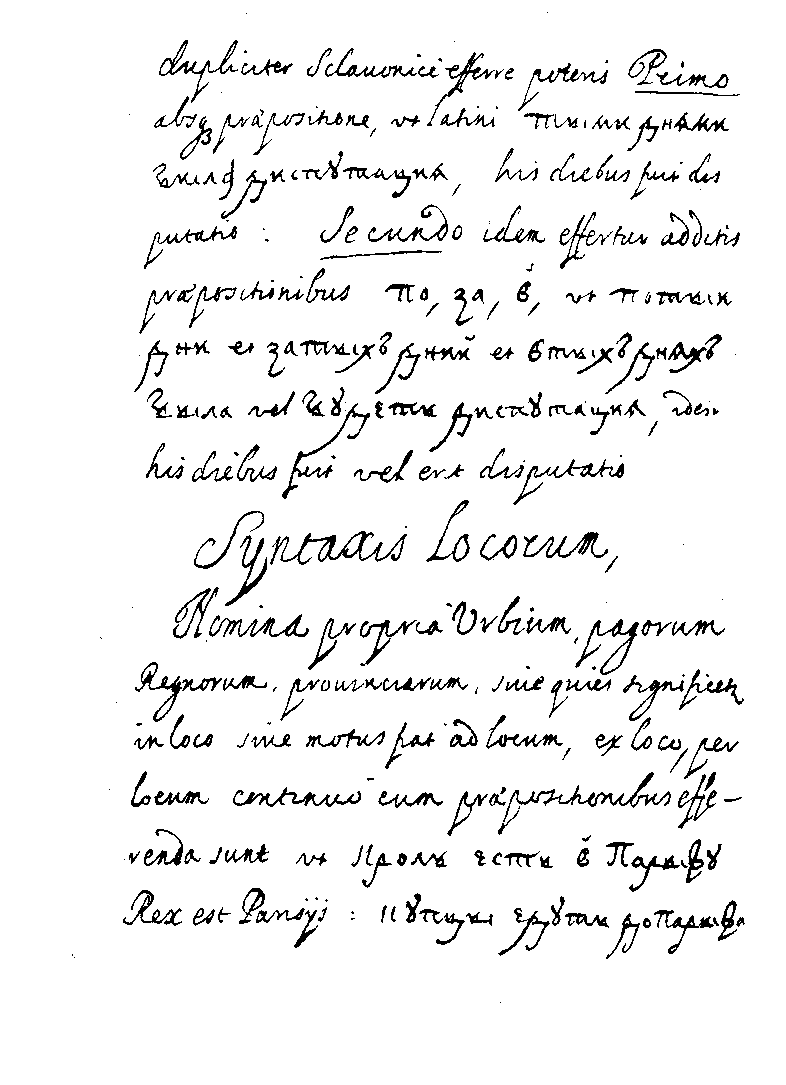 dupliciter Sclavonicè efferre poteris Primo
absq; præpositione, ut latini тыми днями
была диспутация, his diebus fuit dis
putatio : Secundo idem effertur additis
præpositionibus по, за, в, ut потыи
дни et затыхъ дний et втыхъ дняхъ
была vel будетъ диспутация, idem
his diebus fuit vel erit disputatio
Syntaxis Locorum,
Nomina propria Urbium, pagorum
Regnorum, prouinciarum, siue quies significetur
in loco siue motus fiat ad locum, ex loco, per
locum continuò cum præpositionibus effe-
renda sunt ut Кроль есть в Парижу
Rex est Parisijs : едутъ до Парижа